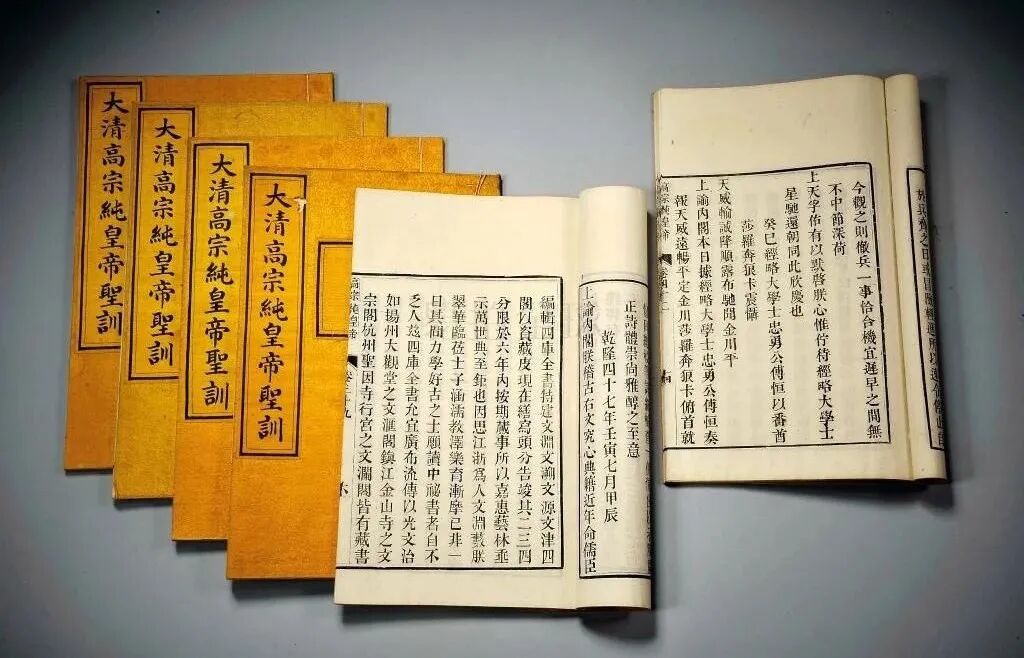 大清高宗純皇帝聖訓
大清高宗純皇帝聖訓
大清高宗純皇帝聖訓
大清高宗純皇帝聖訓
正詩體崇尚雅醇之至意
乾隆四十七年壬寅七月甲辰
上諭內閣朕稽古右文究心典籍近年命儒臣
編輯四庫全書特建文淵文溯文源文津四
閣以資藏庋現在繕寫頭分告竣其二三四
分限於六年內按期蕆事所以嘉惠藝林垂
示萬世典至鉅也因思江浙為人文淵藪朕
翠華臨莅士子涵濡教澤樂育漸摩已非一
日其間力學好古之士願讀中祕書者自不
乏人茲四庫全書允宜廣布流傳以光文治
如揚州大觀堂之文滙閣鎮江金山寺之文
宗閣杭州聖因寺行宮之文瀾閣皆有藏書
高宗純皇帝
今觀之則徹兵一事恰合機宜遲早之間無
不中節深荷
上天孚佑有以默啓朕心惟佇待經略大學士
星馳還朝同此欣慶也
癸巳經略大學士忠勇公傅恒以番酋
莎羅奔狼卡震懾
天威輸誠降順露布馳聞金川平
上諭內閣本日據經略大學士忠勇公傅恒奏
報天威遠暢平定金川莎羅奔狼卡俯首就
高宗純皇帝